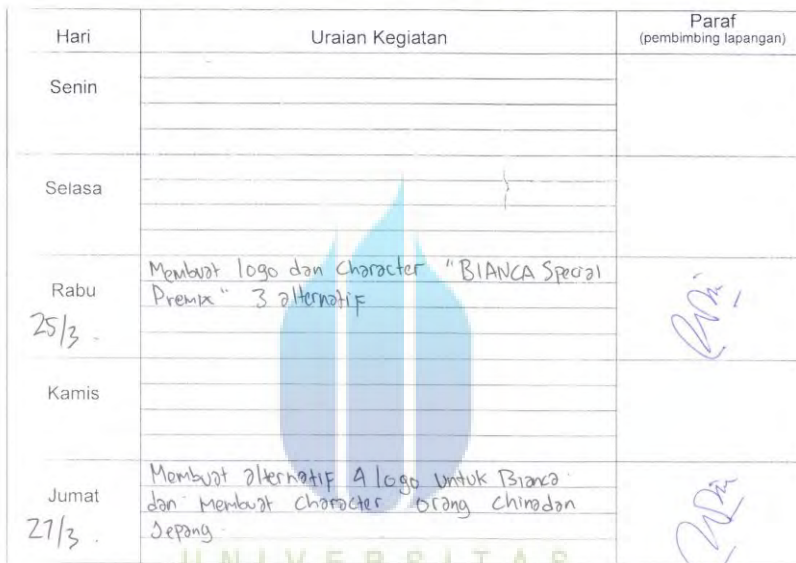 Hari Uraian Kegiatan Paraf
(pembimbing lapangan)
Senin
Selasa
Rabu
25/3 .
Membuat logo dan Character "BIANCA Special
Premix" 3 alternatif
Kamis
Jumat
27/3 .
Membuat alternatif 4 logo untuk Bianca
dan Membuat character orang China dan
Jepang.
UNIVERSITAS